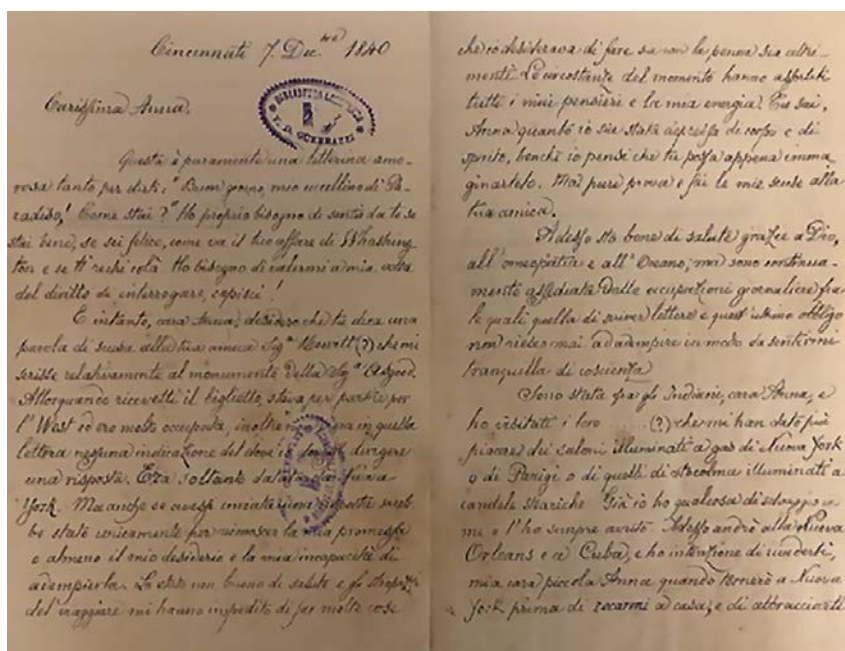 Cincinnati 7. Dec. 1840
Carissima Anna,
BIBLIOTECA LABRONICA
F. D. GUERRAZZI
Questa è puramente una letterina amo-
rosa tanto per dirti: "Buon giorno, mio uccellino di Pa-
radiso! Come stai?" Ho proprio bisogno di sentir da te se
stai bene, se sei felice, come va il tuo affare di Whashing
ton e se ti rechi colà. Ho bisogno di valermi a mia volta
del diritto di interrogare, capisci!
E intanto, cara Anna, desidero che tu dica una
parola di scusa alla tua amica Sigª Hewitt (?) che mi
scrisse relativamente al monumento della Sigª Osgood.
Allorquando ricevetti il biglietto, stava per partir per
l'West ed ero molto occupata, inoltre non era in quella
lettera nessuna indicazione del dove io dirigere
una risposta. Era soltanto datata
York. Ma anche se avessi inviata una risposta sareb
be stata unicamente per rinnovar la mia promessa
o almeno il mio desiderio e la mia incapacità di
adempierla. Lo stato non buono di salute e gli strapazzi
del viaggiare mi hanno impedito di far molte cose
che io desiderava di fare sia con la penna sia altri-
menti. Le circostanze del momento hanno assorbiti
tutti i miei pensieri e la mia energia. Tu sai,
Anna quanto io sia stata depressa di corpo e di
spirito, benchè io pensi che tu possa appena imma
ginartelo. Ma pure prova e fai le mie scuse alla
tua amica.
Adesso sto bene di salute grazie a Dio,
all'omeopatia e all'Oceano; ma sono continua-
mente assediata dalle occupazioni giornaliere fra
le quali quella di scriver lettere e quest'ultimo obbligo
non riesco mai ad adempire in modo da sentirmi
tranquilla di coscienza.
Sono stata fra gli Indiani, cara Anna, e
ho visitati i loro ...... (?) che mi han dato più
piacere dei saloni illuminati a gas di Nuova York
o di Parigi o di quelli di Stocolma illuminati a
candele steariche. Già io ho qualcosa di selvaggio in
me e l'ho sempre avuto. Adesso andrò alla Nuova
Orleans e a Cuba, e ho intenzione di rivederti,
mia cara piccola Anna quando tornerò a Nuova
York prima di recarmi a casa, e di abbracciarti